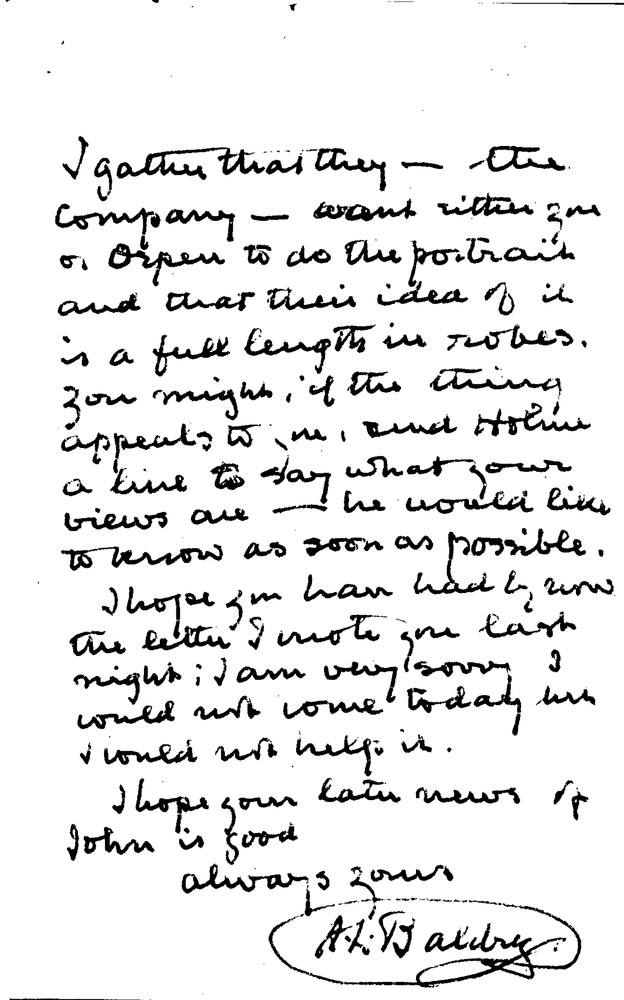 I gather that they — the
Company — want either you
or Orpen to do the portrait
and that their idea of it
is a full length in robes.
You might, if the thing
appeals to you, send Holme
a line to say what your
views are — he would like
to know as soon as possible.
I hope you have had by now
the letter I wrote you last
night; I am very sorry I
could not come today but
I could not help it.
I hope your later news of
John is good
always yours
A.L. Baldry.